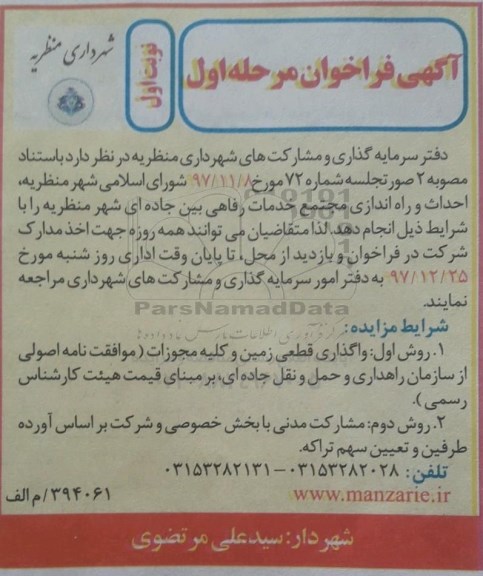 شهرداری منظریه
نوبت اول
آگهی فراخوان مرحله اول
دفتر سرمایه گذاری و مشارکت های شهرداری منظریه در نظر دارد باستناد
مصوبه ۲ صورتجلسه شماره ۷۲ مورخ ۹۷/۱۱/۸ شورای اسلامی شهر منظریه،
احداث و راه اندازی مجتمع خدمات رفاهی بین جاده ای شهر منظریه را با
شرایط ذیل انجام دهد. لذا متقاضیان می توانند همه روزه جهت اخذ مدارک
شرکت در فراخوان و بازدید از محل، تا پایان وقت اداری روز شنبه مورخ
۹۷/۱۲/۲۵ به دفتر امور سرمایه گذاری و مشارکت های شهرداری مراجعه
نمایند.
ParsNamadData
شرایط مزایده:
۱. روش اول: واگذاری قطعی زمین و کلیه مجوزات (موافقت نامه اصولی
از سازمان راهداری و حمل و نقل جاده ای، بر مبنای قیمت هیئت کارشناس
رسمی).
۲. روش دوم: مشارکت مدنی با بخش خصوصی و شرکت بر اساس آورده
طرفین و تعیین سهم تراکه.
تلفن: ۰۳۱۵۳۲۸۲۰۲۸-۰۳۱۵۳۲۸۲۱۳۱
www.manzarie.ir
۳۹۴۰۶۱/م الف
شهردار: سیدعلی مرتضوی